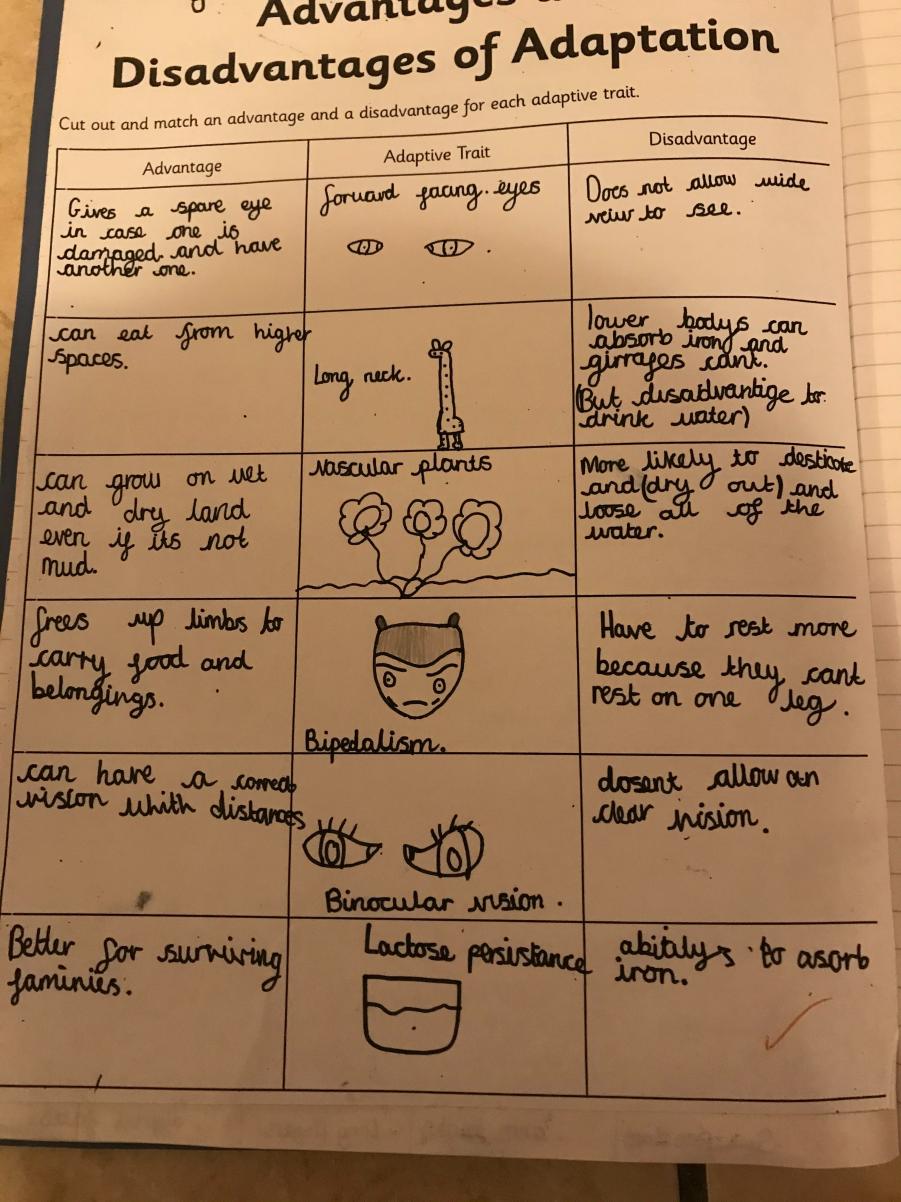 Advantages
Disadvantages of Adaptation
Cut out and match an advantage and a disadvantage for each adaptive trait.
Advantage
Adaptive Trait
Disadvantage
Gives a spare eye
in case one is
damaged. and have
another one.
forward facing. eyes
Does not allow wide
veiw to see.
can eat from higher
spaces.
Long neck.
lower bodys can
absorb iron and
girrafes cant.
(But disadvantige to
drink water)
can grow on wet
and dry land
even if its not
mud.
Vascular plants
More likely to desticate
and (dry out) and
loose all of the
water.
frees up limbs to
carry food and
belongings.
Bipedalism.
Have to rest more
because they cant
rest on one leg.
can have a correct
vision whith distances
Binocular vision.
dosent allow an
clear vision.
Better for surviving
faminies.
Lactose persistance
abitalys to asorb
iron.